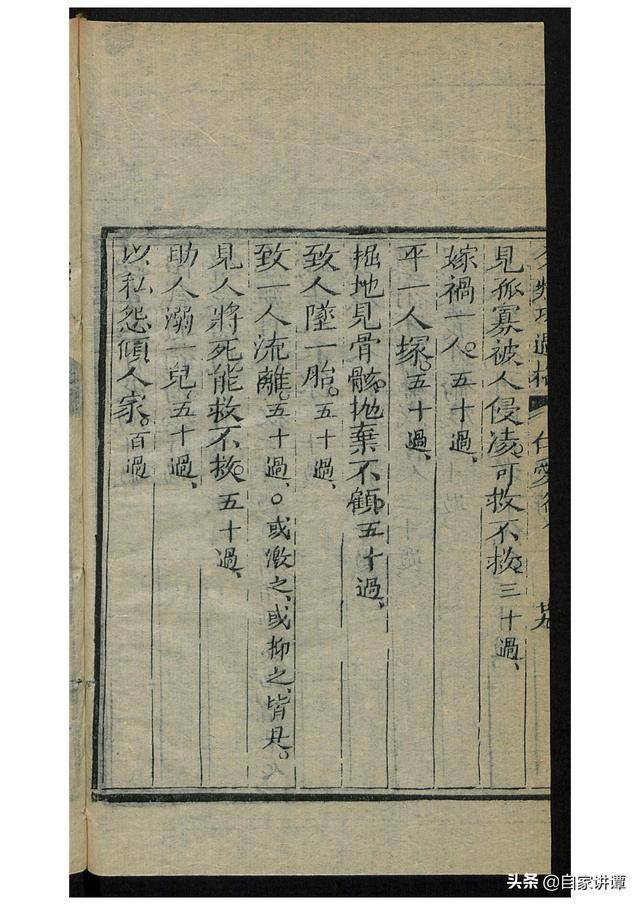 功過格 仁愛
見孤寡被人侵凌可救不救。三十過、
嫁禍一人。五十過、
平一人塚。五十過、
掘地見骨骸拋棄不顧。五十過、
致人墜一胎。五十過、
致一人流離。五十過、○或激之、或抑之、皆是。
見人將死能救不救。五十過、
助人溺一兒。五十過、
以私怨傾人家。百過
头条 @自家讲谭